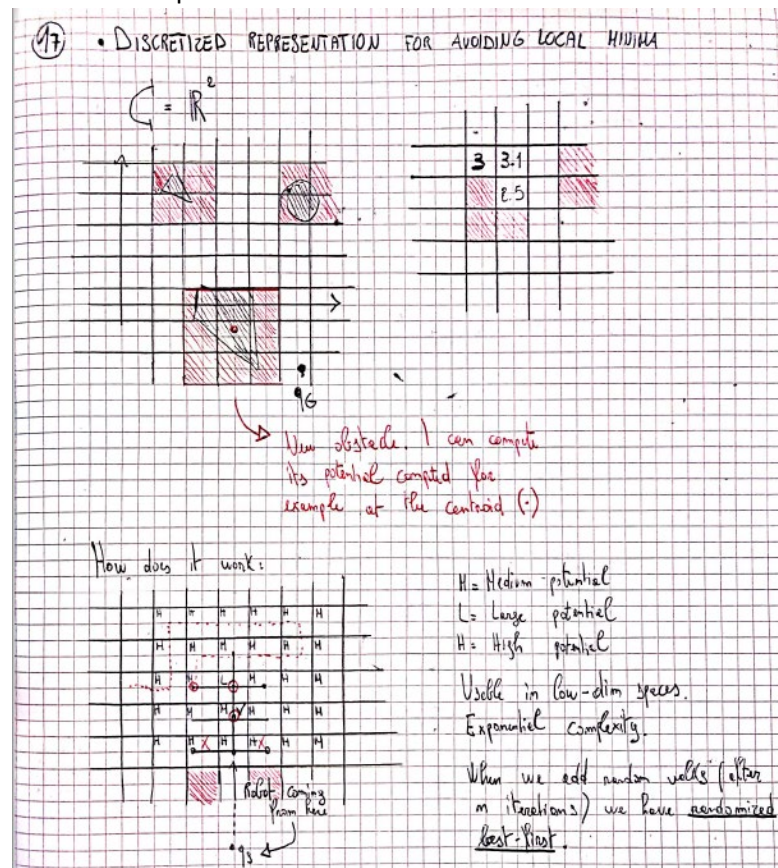 17 • DISCRETIZED REPRESENTATION FOR AVOIDING LOCAL MINIMA
C = ℝ²
3 3.1
2.5
qG
New obstacle. I can compute
its potential computed for
example at the centroid (·)
How does it work:
H H H H H H
H H H H H H
H H L H H H
H H H H H H
H X H H X H H
Robot coming
from here
qs
M = Medium potential
L = Large potential
H = High potential
Usable in low-dim spaces.
Exponential complexity.
When we add random walks (after
m iterations) we have randomized
best-first.